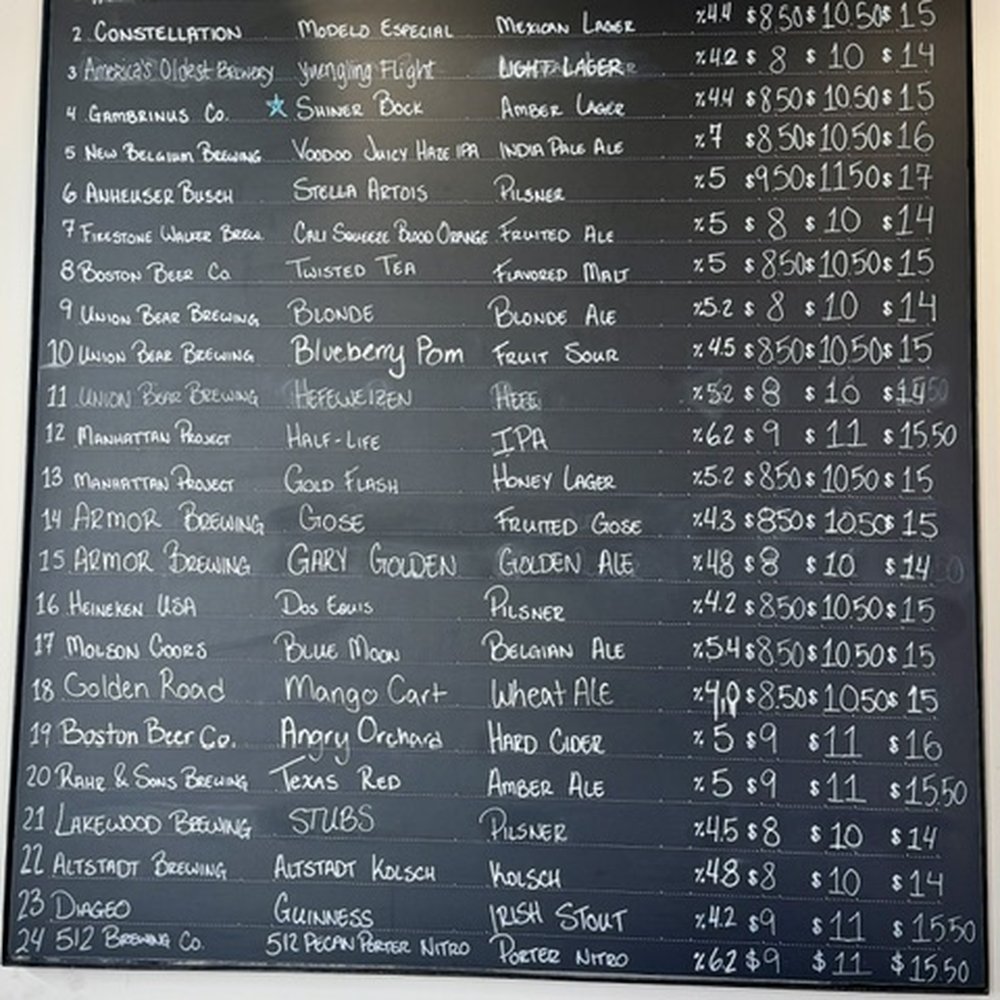 2 CONSTELLATION MODELO ESPECIAL MEXICAN LAGER %4.4 $8.50 $10.50 $15
3 America's Oldest Brewery Yuengling Flight LIGHT LAGER %4.2 $8 $10 $14
4 GAMBRINUS CO. SHINER BOCK AMBER LAGER %4.4 $8.50 $10.50 $15
5 NEW BELGIUM BREWING VOODOO JUICY HAZE IPA INDIA PALE ALE %7 $8.50 $10.50 $16
6 ANHEUSER BUSCH STELLA ARTOIS PILSNER %5 $9.50 $11.50 $17
7 FIRESTONE WALKER BREW. CALI SQUEEZE BLOOD ORANGE FRUITED ALE %5 $8 $10 $14
8 BOSTON BEER CO. TWISTED TEA FLAVORED MALT %5 $8.50 $10.50 $15
9 UNION BEAR BREWING BLONDE BLONDE ALE %5.2 $8 $10 $14
10 UNION BEAR BREWING Blueberry Pom FRUIT SOUR %4.5 $8.50 $10.50 $15
11 UNION BEAR BREWING HEFEWEIZEN HEFE %5.2 $8 $10 $14
12 MANHATTAN PROJECT HALF-LIFE IPA %6.2 $9 $11 $15.50
13 MANHATTAN PROJECT GOLD FLASH HONEY LAGER %5.2 $8.50 $10.50 $15
14 ARMOR BREWING GOSE FRUITED GOSE %4.3 $8.50 $10.50 $15
15 ARMOR BREWING GARY GOLDEN GOLDEN ALE %4.8 $8 $10 $14
16 HEINEKEN USA DOS EQUIS PILSNER %4.2 $8.50 $10.50 $15
17 MOLSON COORS BLUE MOON BELGIAN ALE %5.4 $8.50 $10.50 $15
18 Golden Road Mango Cart Wheat ALE %4.0 $8.50 $10.50 $15
19 Boston Beer Co. Angry Orchard HARD CIDER %5 $9 $11 $16
20 RAHR & SONS BREWING TEXAS RED AMBER ALE %5 $9 $11 $15.50
21 LAKEWOOD BREWING STUBS PILSNER %4.5 $8 $10 $14
22 ALTSTADT BREWING ALTSTADT KOLSCH KOLSCH %4.8 $8 $10 $14
23 DIAGEO GUINNESS IRISH STOUT %4.2 $9 $11 $15.50
24 512 BREWING CO. 512 PECAN PORTER NITRO PORTER NITRO %6.2 $9 $11 $15.50